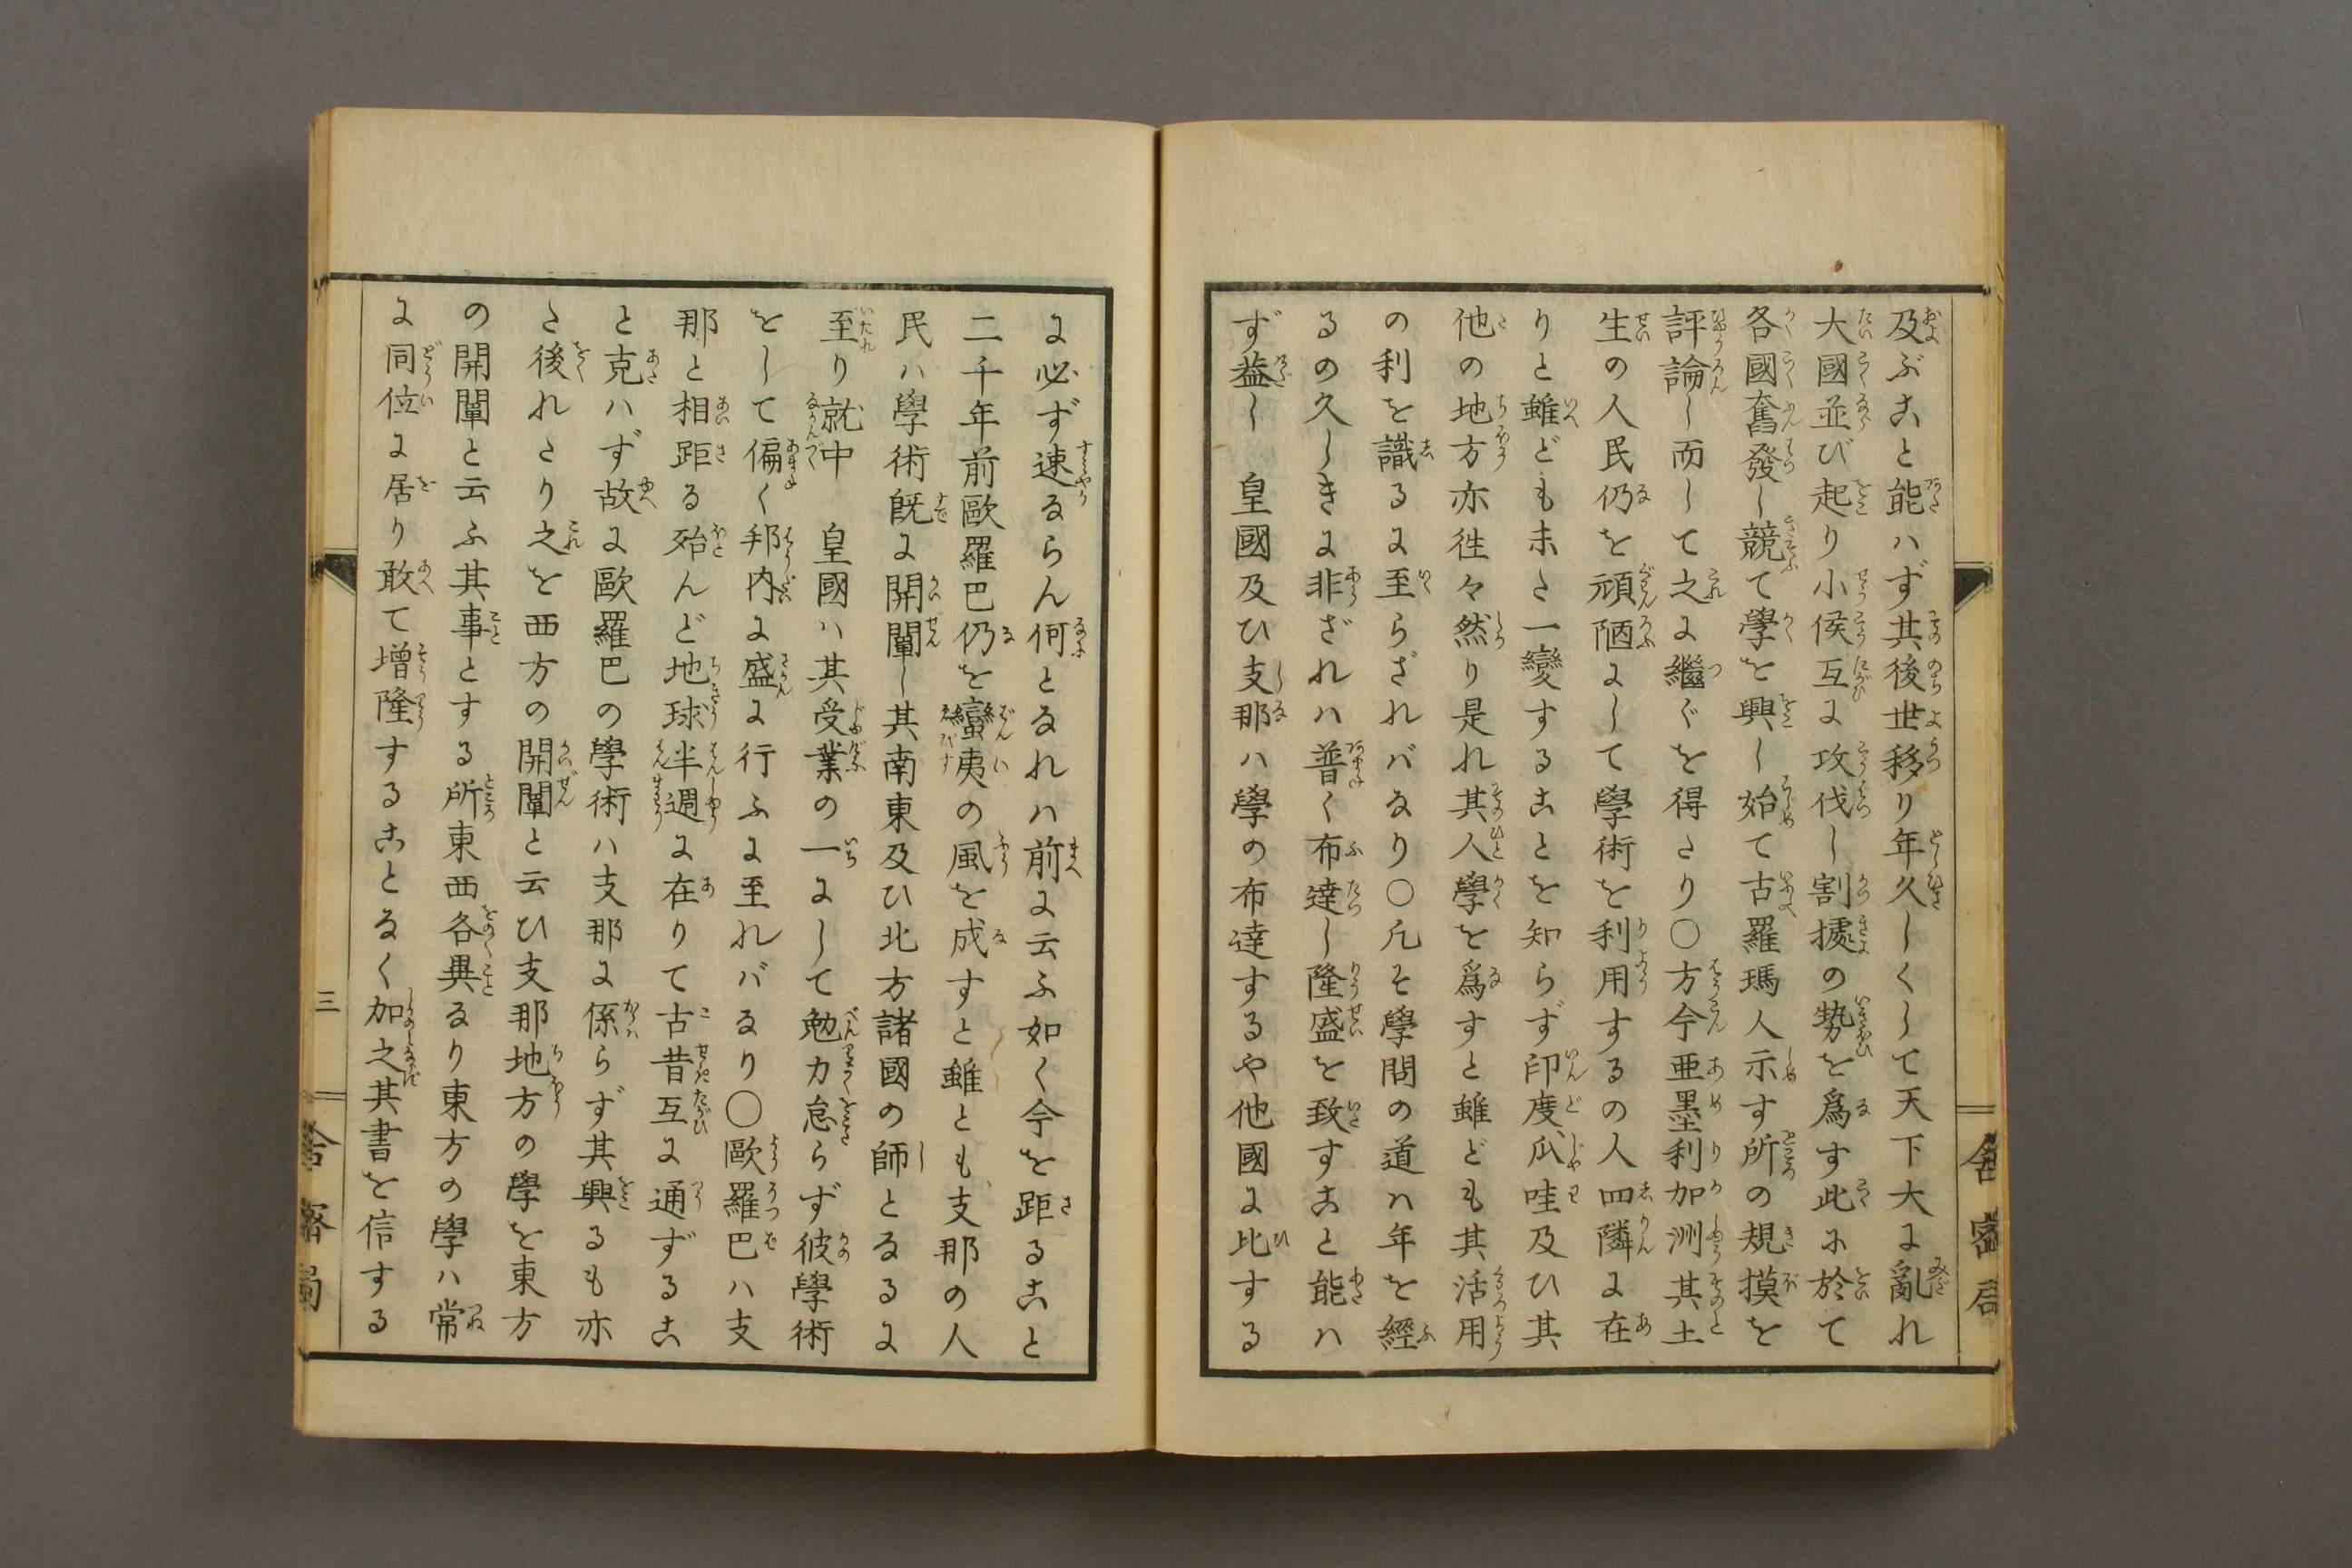 及ぶこと能ハず其後世移り年久しくして天下大に亂れ
大國並び起り小侯互に攻伐し割據の勢を爲す此に於て
各國奮發し競て學を興し始て古羅瑪人示す所の規摸を
評論し而して之に繼ぐを得たり○方今亜墨利加洲其土
生の人民仍を頑陋にして學術を利用するの人四隣に在
りと雖ども未た一變することを知らず印度、瓜哇及ひ其
他の地方亦徃々然り是れ其人學を爲すと雖ども其活用
の利を識るに至らざれバなり○凡そ學問の道ハ年を經
るの久しきに非ざれハ普く布達し隆盛を致すこと能ハ
ず益し 皇國及ひ支那ハ學の布達するや他國に比する
舎密局
に必ず速るらん何となれハ前に云ふ如く今を距ること
二千年前歐羅巴仍を蠻夷の風を成すと雖とも支那の人
民ハ學術既に開闡し其南東及ひ北方諸國の師となるに
至り就中 皇國ハ其受業の一にして勉力怠らず彼學術
をして偏く邦内に盛に行ふに至れバなり○歐羅巴ハ支
那と相距る殆んど地球半週に在りて古昔互に通ずるこ
と克ハず故に歐羅巴の學術ハ支那に係らず其興るも亦
た後れたり之を西方の開闡と云ひ支那地方の學を東方
の開闡と云ふ其事とする所東西各異なり東方の學ハ常
に同位に居り敢て増隆することなく加之其書を信する
三
舎密局